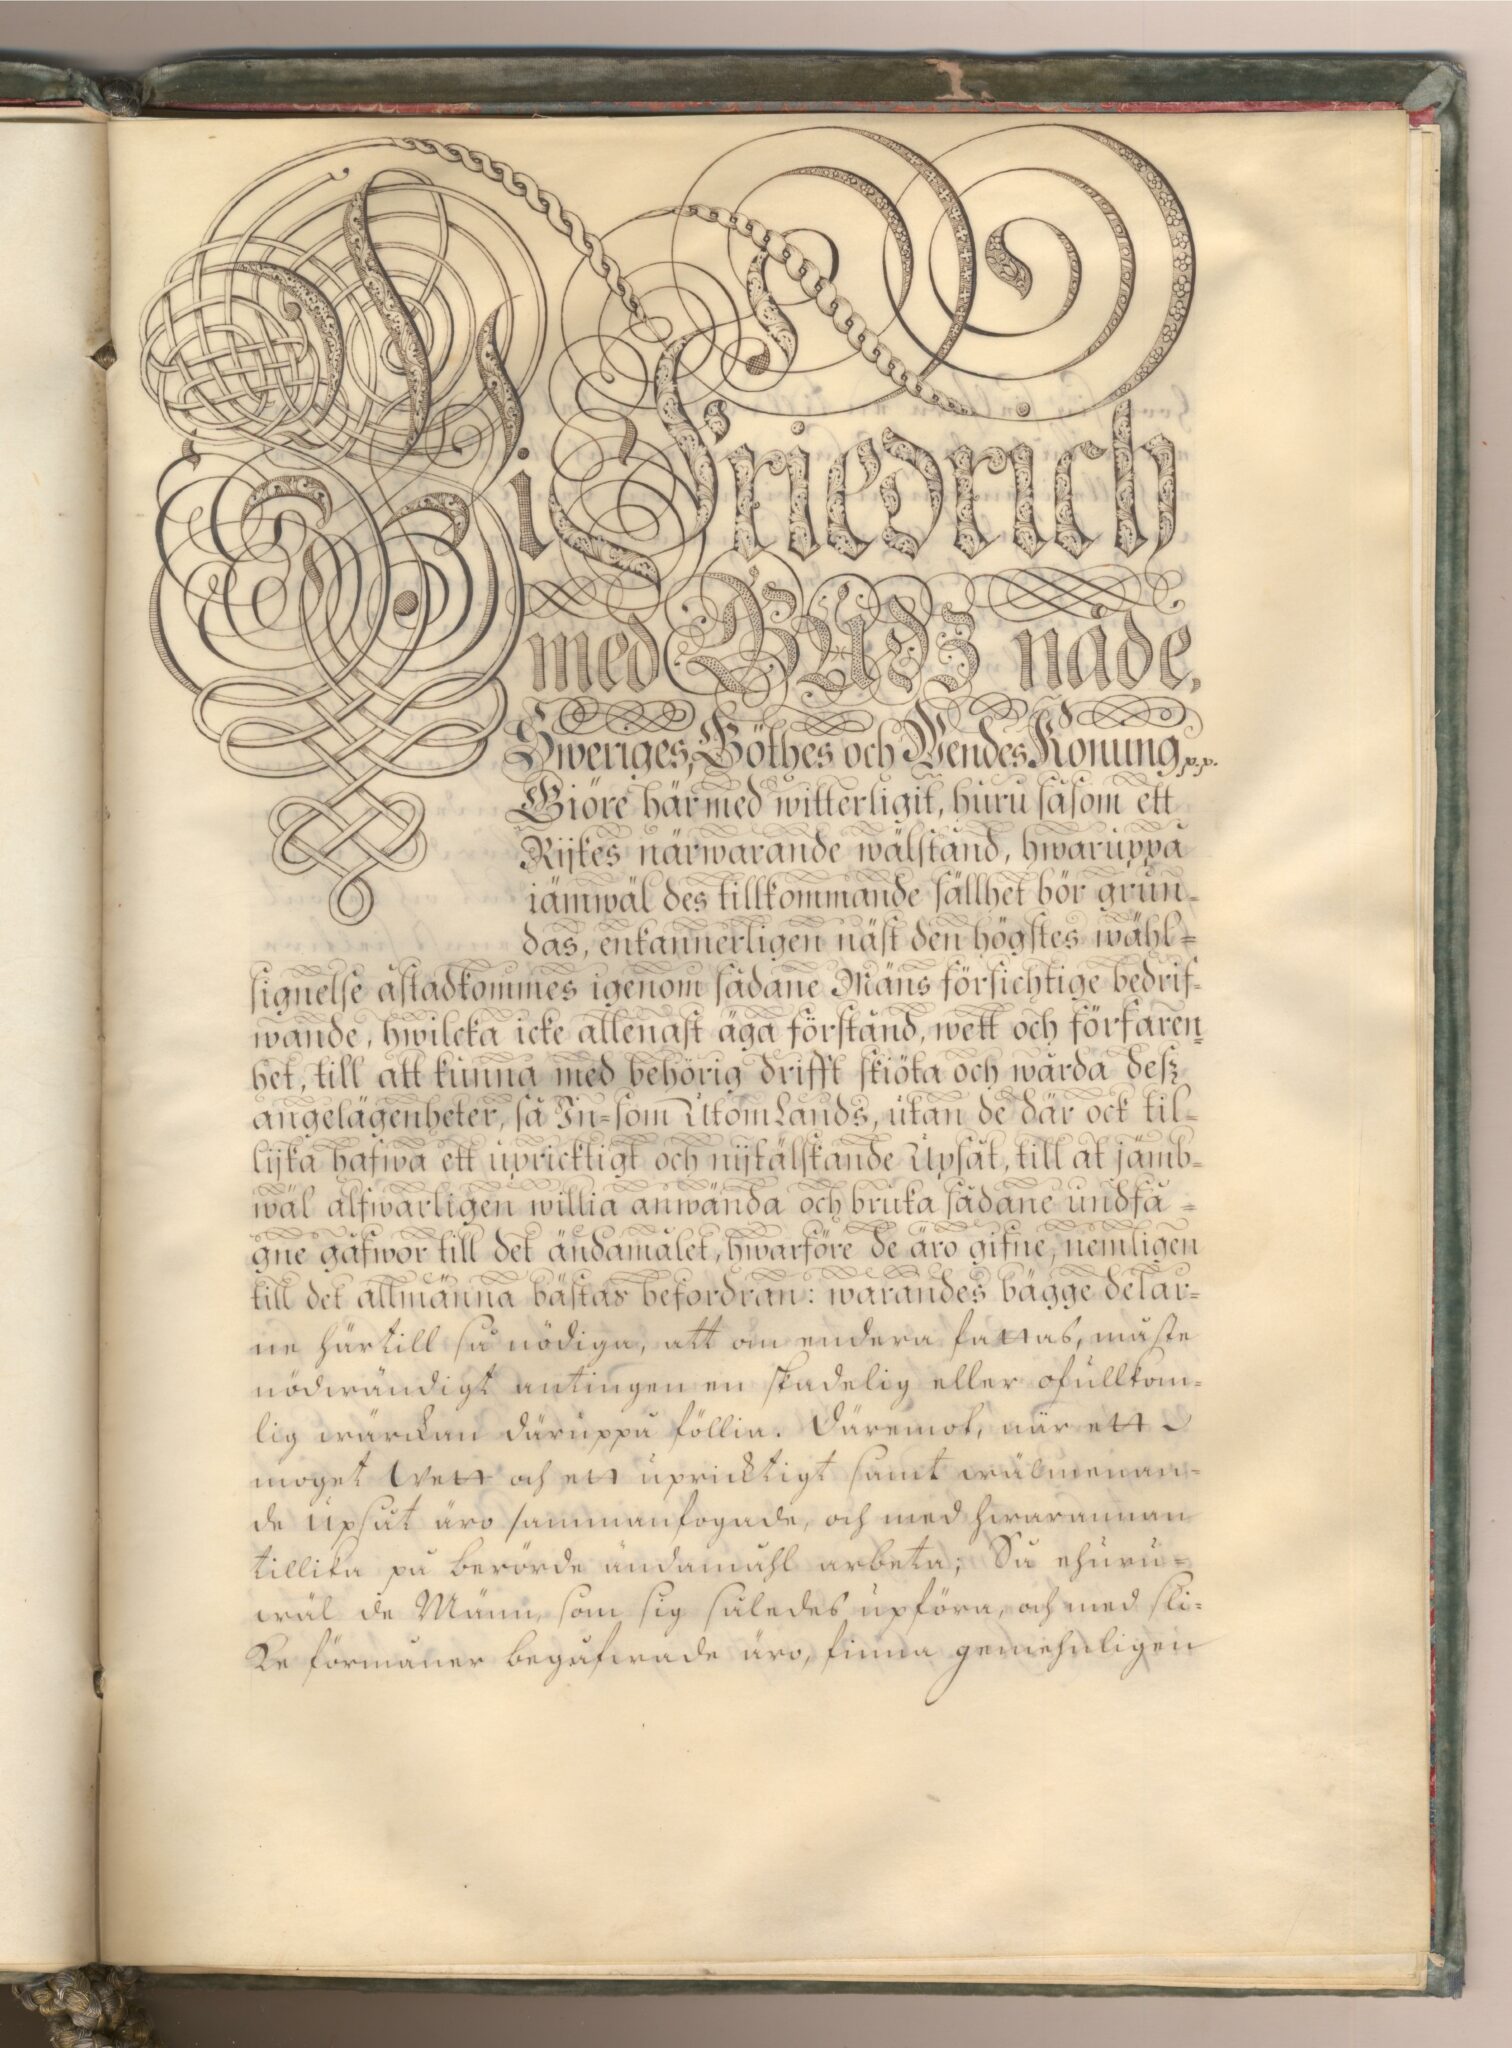 Wi Friedrich
med Gudz nåde,
Sweriges, Göthes och Wendes Konung, p.p.
Giöre här med witterligit, huru såsom ett
Rijkes närwarande wälstånd, hwaruppå
iämwäl des tillkommande sällhet bör grun-
das, enkannerligen näst den högstes wähl-
signelse åstadkommes igenom sådane Mäns försichtige bedrif-
wande, hwilcka icke allenast äga förstånd, wett och förfaren-
het, till att kunna med behörig drifft skiöta och wårda desz
angelägenheter, så In-som Utom Lands, utan de där ock til-
lijka hafwa ett upricktigt och nijtälskande Upsåt, till at jämb-
wäl alfwarligen willia anwända och bruka sådane undfå-
gne gåfwor till det ändamålet, hwarföre de äro gifne, nemligen
till det allmänna bästas befordran: warandes bägge delar-
ne härtill så nödiga, att om endera fattas, måste
nödwändigt antingen en skadelig eller ofullkom-
lig wärckan däruppå föllia. Däremot, när ett
moget Wett och ett upricktigt samt wälmenan-
de Upsåt äro sammanfogade, och med hwarannan
tillika på berörde ändamåhl arbeta; Så ehuru-
wäl de Männ, som sig således upföra, och med sli-
ke förmåner begåfwade äro, finna gemehnligen